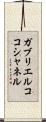 ガブリエルコ
コシャネル